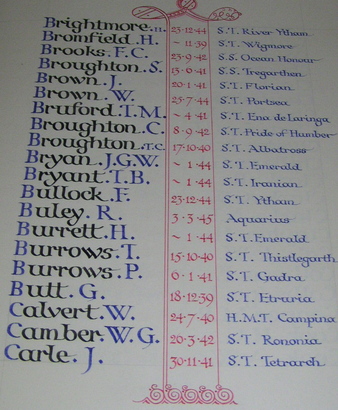 Brightmore. H. 23·12·44 S.T. River Ytham
Bromfield. H. ~ 11·39 S.T. Wigmore
Brooks. F.C. 23·9·42 S.S. Ocean Honour
Broughton. S. 13·6·41 S.S. Tregarthen
Brown. J. 20·1·41 S.T. Florian
Brown. W. 25·7·44 S.T. Portsea
Bruford. T.M. ~ 4·41 S.T. Ena de Laringa
Broughton. C. 8·9·42 S.T. Pride of Humber
Broughton. T.C. 17·10·40 S.T. Albatross
Bryan. J.G.W. ~ 1·44 S.T. Emerald
Bryant. T.B. ~ 1·44 S.T. Iranian
Bullock. F. 23·12·44 S.T. Ytham
Buley. R. 3·3·45 Aquarius
Burrett. H. ~ 1·44 S.T. Emerald
Burrows. T. 15·10·40 S.T. Thistlegarth
Burrows. P. 6·1·41 S.T. Gadra
Butt. G. 18·12·39 S.T. Etruria
Calvert. W. 24·7·40 H.M.T. Campina
Camber. W.G. 20·3·42 S.T. Rononia
Carle. J. 30·11·41 S.T. Tetrarch